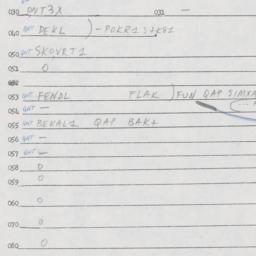 030 QNT3X 031 —
040 QNT DEKL )-POKR1S+K81
050 QNT SKOVRT1
051 0
052
053 QNT FENDL FLAK )FUN QAP SIMXA
054 QNT —
055 QNT BEKAL1 QAP BAK+
056 QNT —
057 QNT —
058 0
059 0
060 0
070 0
080 0